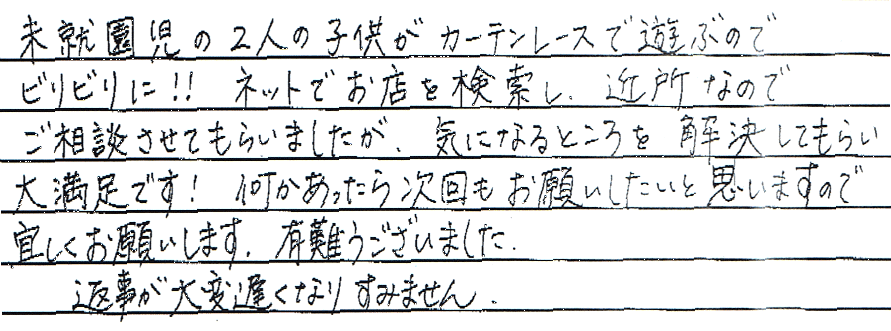 未就園児の2人の子供がカーテンレースで遊ぶので
ビリビリに!! ネットでお店を検索し、近所なので
ご相談させてもらいましたが、気になるところを解決してもらい
大満足です! 何かあったら次回もお願いしたいと思いますので
宜しくお願いします。有難うございました。
返事が大変遅くなりすみません。